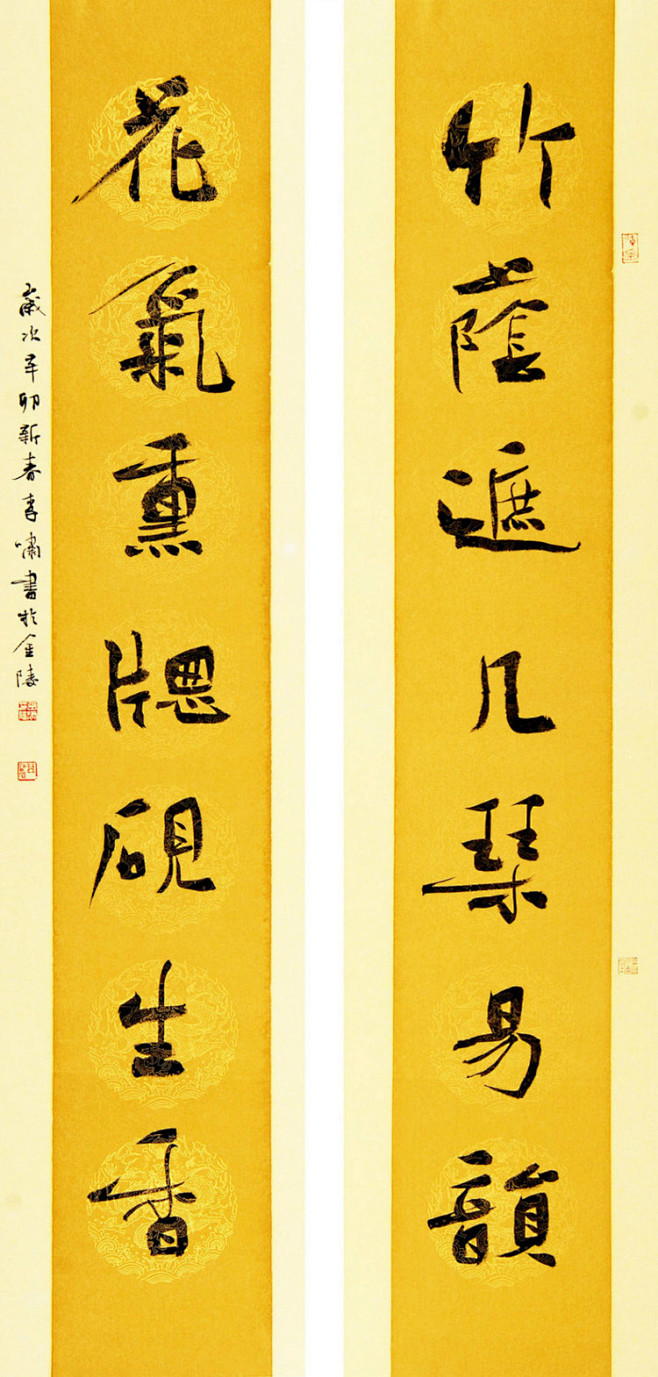 竹蔭遮几琹易韻
花氣熏牕硯生香
歲次辛卯新春李啸書於金陵